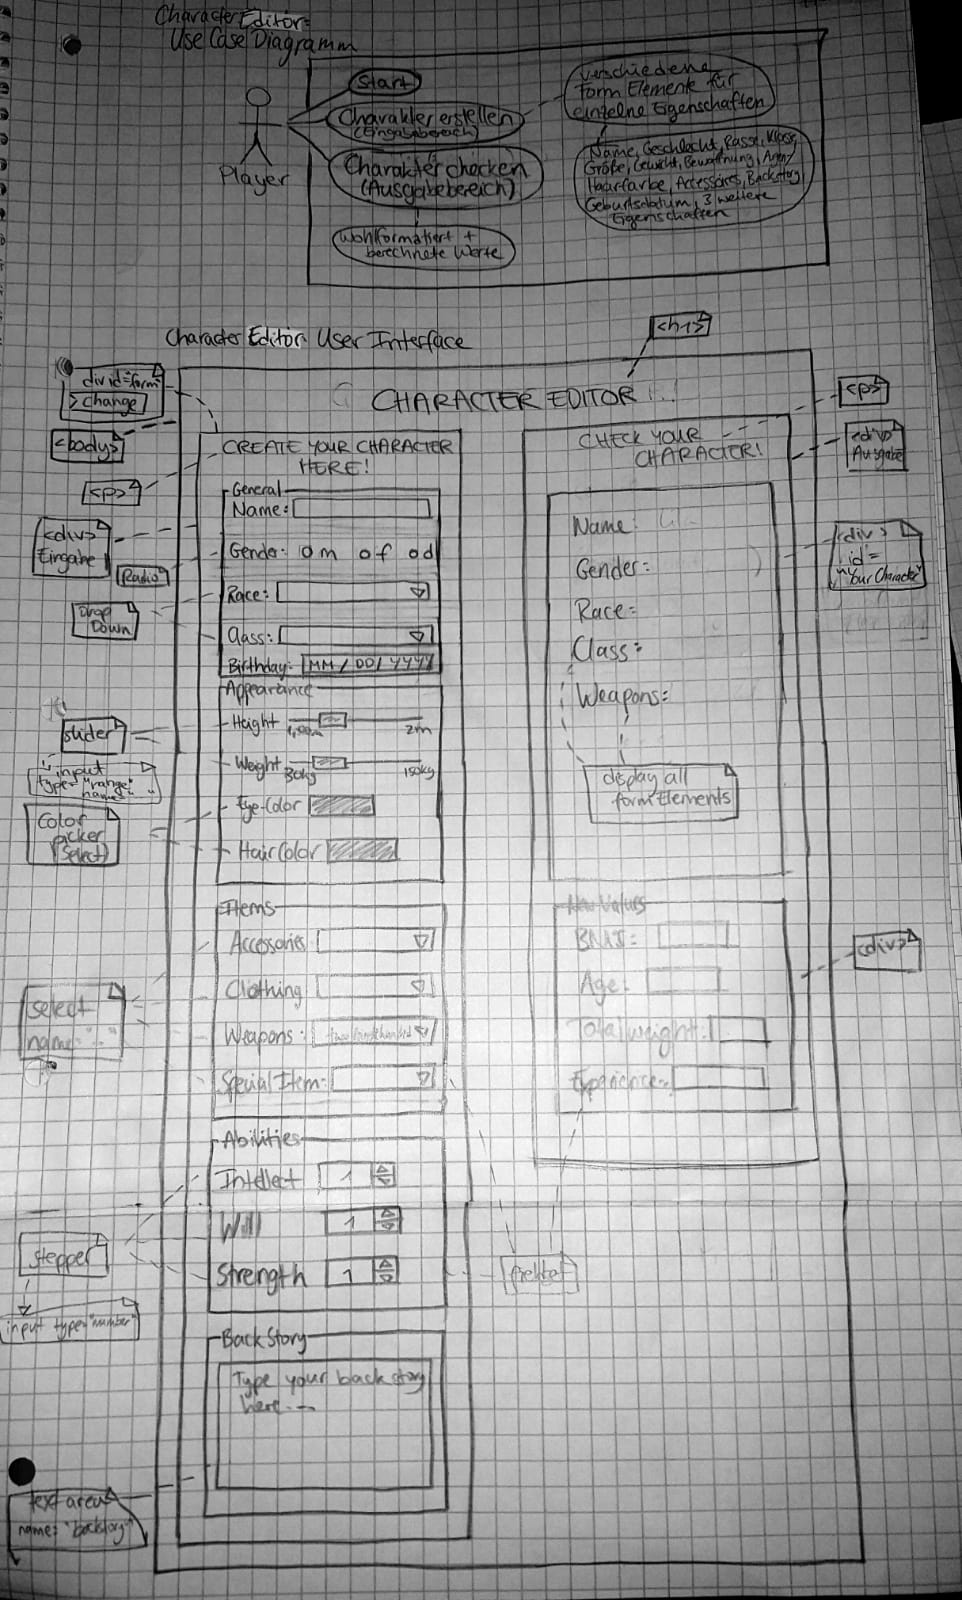 Character Editor:
Use Case Diagramm
Start
Charakter erstellen
(Eingabebereich)
Charakter checken
(Ausgabebereich)
wohlformatiert +
berechnete Werte
Player
verschiedene
Form Elemente für
einzelne Eigenschaften
Name, Geschlecht, Rasse, Klasse,
Größe, Gewicht, Bewaffnung,
Haarfarbe, Accessoires, Backstory
Geburtsdatum, 3 weitere
Eigenschaften
Character Editor: User Interface
<h1>
div id="form"
> change
<body>
<p>
<div>
Eingabe
Radio
Drop
Down
slider
input
type="range"
name=" "
Color
picker
(select)
select
name="..."
stepper
input type="number"
text area
name: "backstory"
CHARACTER EDITOR
CREATE YOUR CHARACTER
HERE!
General
Name:
Gender: o m o f o d
Race:
Class:
Birthday: MM / DD / YYYY
Appearance
Height 2m
Weight 30kg 150kg
Eye-Color
Hair Color
Items
Accessories
Clothing
Weapons:
Special Item:
Abilities
Intellect 1
Will 1
Strength 1
Back Story
Type your back story
here...
CHECK YOUR
CHARACTER!
Name:
Gender:
Race:
Class:
Weapons:
display all
form Elements
New Values
BMI:
Age:
Total weight:
Experience:
<p>
<div>
Ausgabe
<div>
id=
"Your Character"
<div>